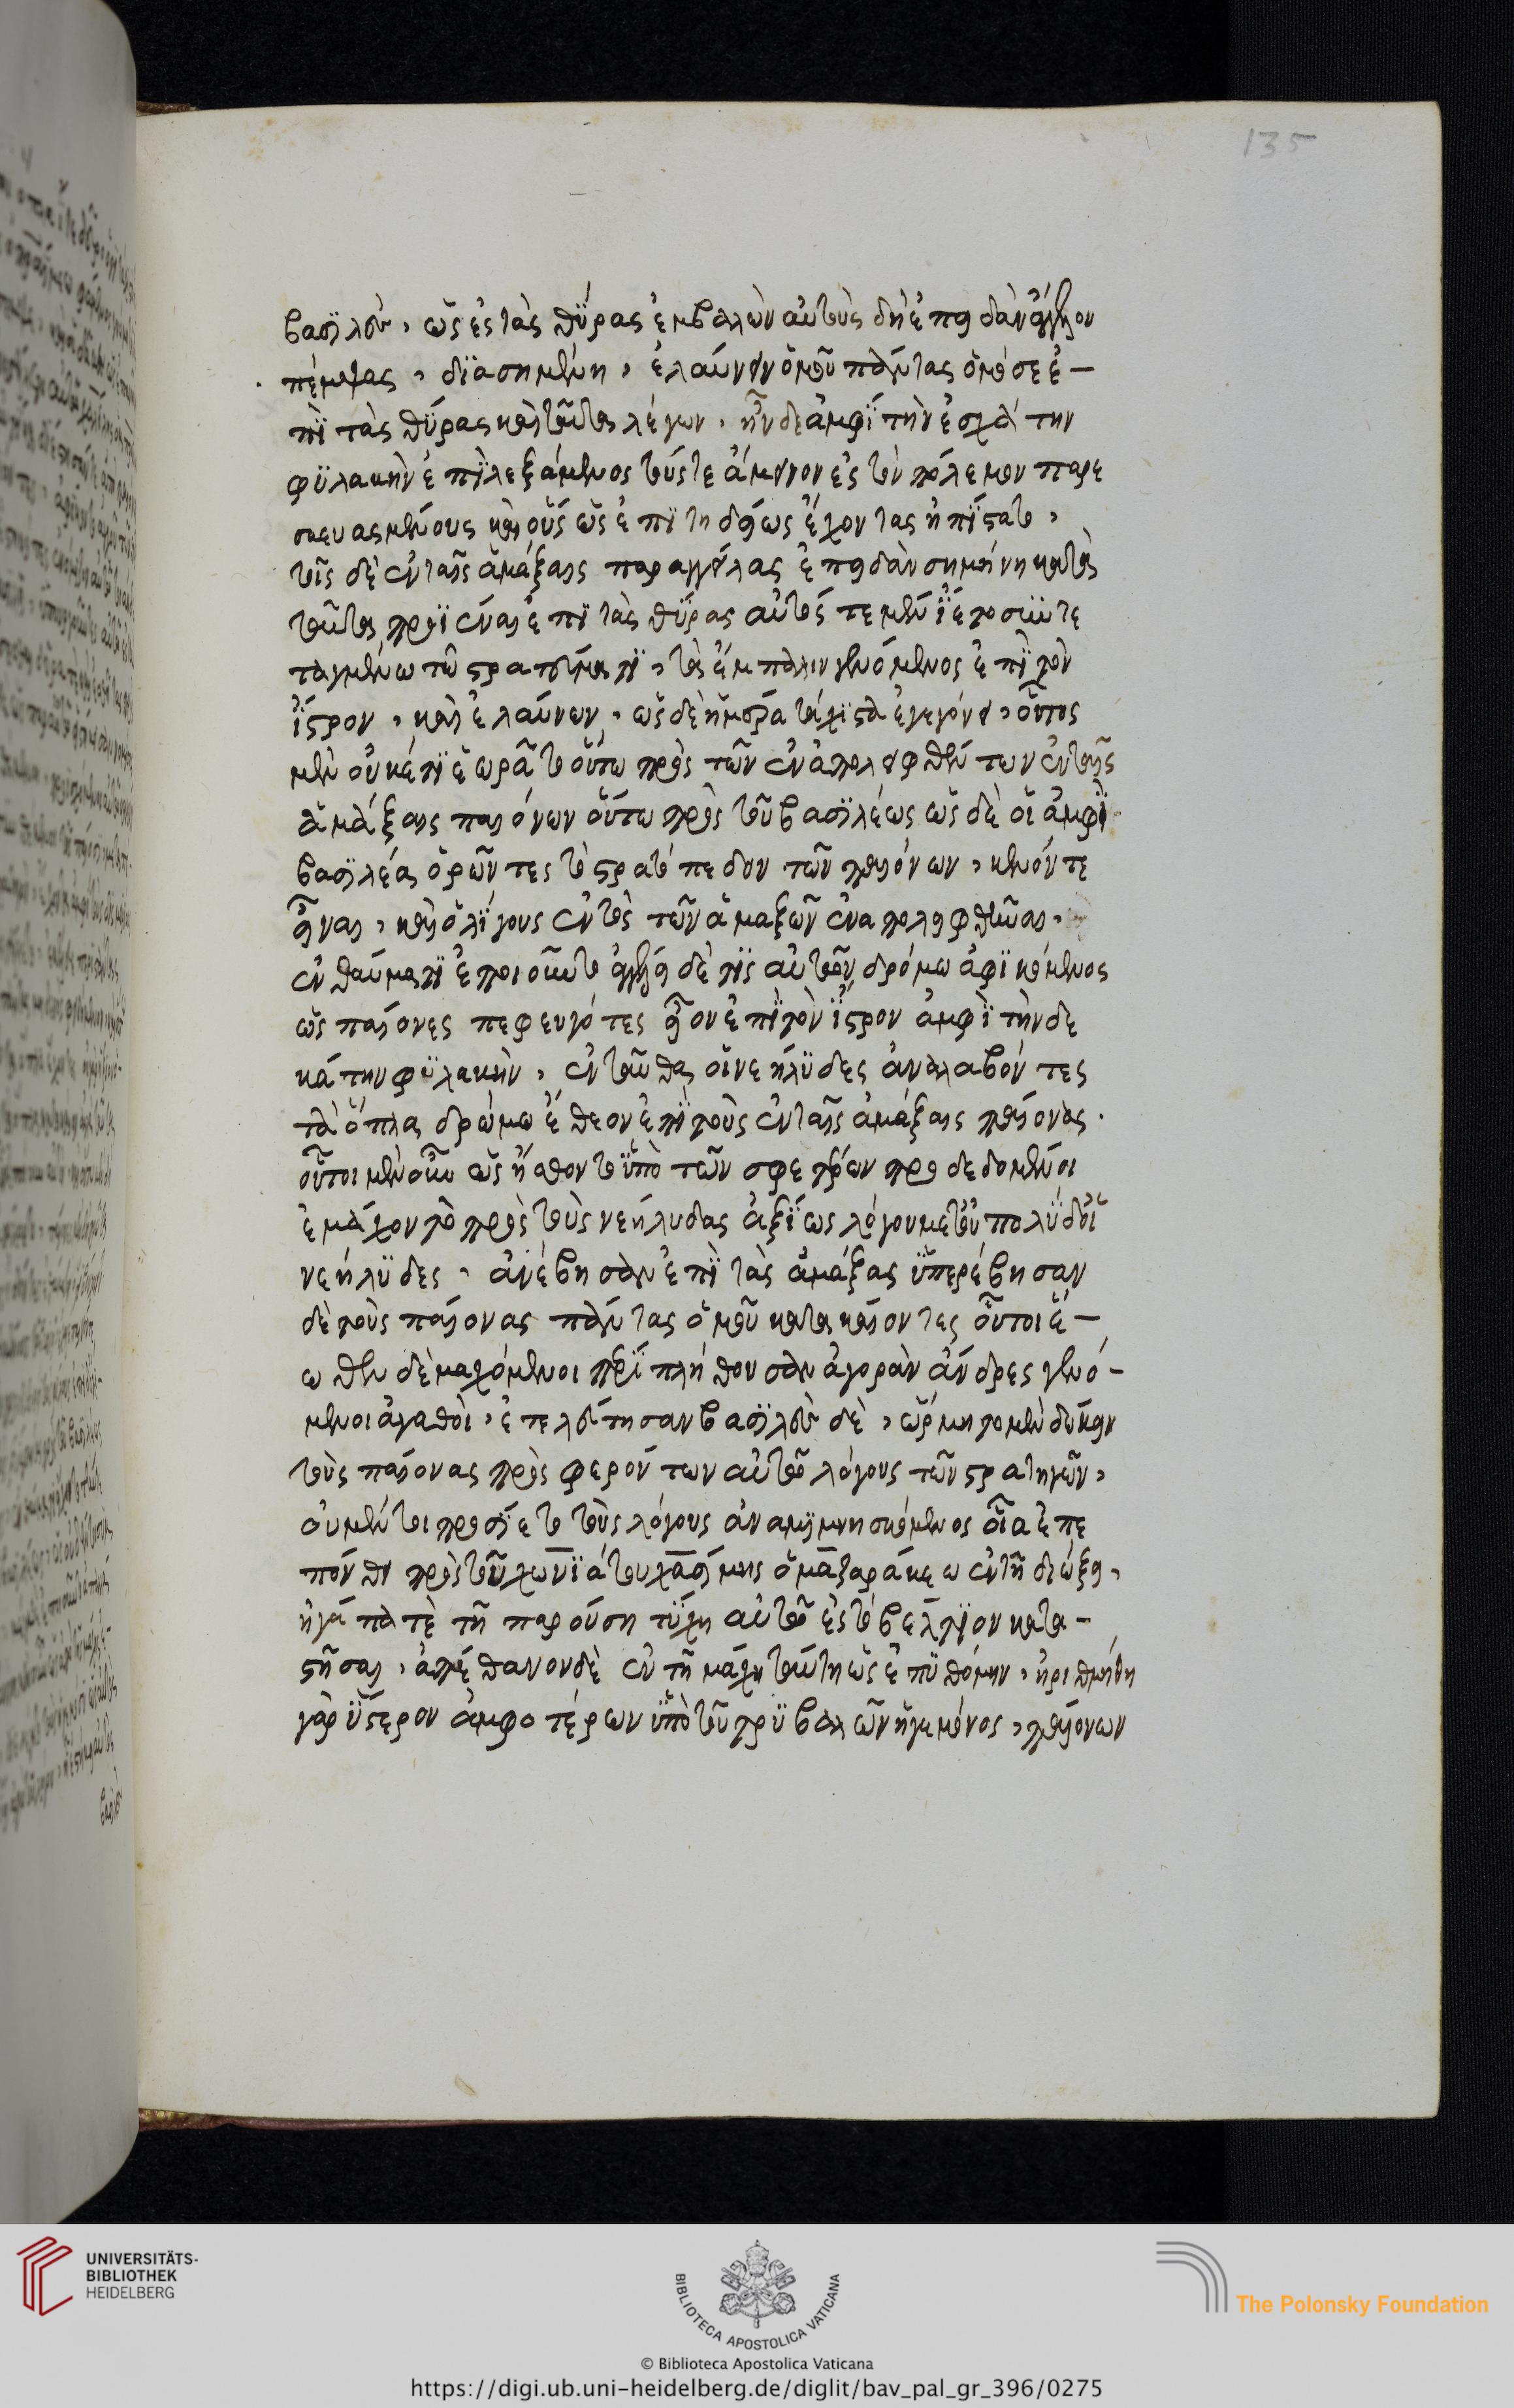 135
βασϊλεὺ, ὡς ἐς τὰς θύρας ἐμβαλὼν αὐτοὺς δὴ ἐπειδὰν ἄγγελον
πέμψας, διασημήνη, ἐλαύνειν ὁμοῦ πάντας ὁμόσε ἐ-
πὶ τὰς θύρας καὶ ταῦτα λέγων, ἦν δὲ ἀμφὶ τὴν ἐσχάτην
φυλακὴν ἐπιλεξάμενος τούς τε ἄμεινον ἐς τὸν πόλεμον παρε
σκευασμένους καὶ οὓς ὡς ἐπιτηδείως ἔχοντας ἠπίστατο,
τοῖς δὲ ἐν ταῖς ἁμάξαις παραγγείλας ἐπειδὰν σημήνη κατὰ
ταῦτα προϊέναι ἐπὶ τὰς θύρας αὐτός τε μὲν ἵετο σὺν τε
ταγμένω τῶ στρατεύματι, τὰ ἔμπαλιν γενόμενος ἐπὶ τὸν
ἴστρον, καὶ ἐλαύνων, ὡς δὲ ἡμέρα τάχιστα ἐγεγόνει, οὗτος
μὲν οὐκέτι ἑωρᾶτο οὔτω πρὸς τῶν ἐναπολειφθέντων ἐν ταῖς
ἁμάξαις παιόνων οὔτω πρὸς τοῦ βασιλέως ὡς δὲ οἱ ἀμφὶ
βασιλέα ὁρῶντες τὸ στρατόπεδον τῶν παιόνων, κενόν τε
εἶναι, καὶ ὀλίγους ἐντὸς τῶν ἁμαξῶν ἐναπολειφθῆναι,
ἐν θαύματι ἐποιοῦντο ἀγγέλει δέ τις αὐτῶν δρόμω ἀφικόμενος
ὡς παίονες πεφευγότες εἶον ἐπὶ τὸν ἴστρον ἀμφὶ τὴν δε
κάτην φυλακὴν, ἐνταῦθα οἱ νεήλυδες ἀναλαβόντες
τὰ ὅπλα δρώμω ἔθεον ἐπὶ τοὺς ἐν ταῖς ἁμάξαις παίονας.
οὗτοι μὲν οὖν ὡς ἤσθοντο ὑπὸ τῶν σφετέρων προδεδομένοι
ἐμάχοντο πρὸς τοὺς νεήλυδας ἀξίως λόγου μετοῦ πολὺ δ' οἱ
νεήλυδες, ἀνέβησαν ἐπὶ τὰς ἁμάξας ὑπερέβησαν
δὲ τοὺς παίονας πάντας ὁμοῦ κατακαίοντες οὗτοι ἕ-
ωθεν δὲ μαχόμενοι περὶ πλήθουσαν ἀγορὰν ἄνδρες γενό-
μενοι ἀγαθοὶ, ἐτελεύτησαν βασιλεὺ δὲ, ὥρμητο μὲν διώκειν
τοὺς παίονας πρὸς φερόντων αὐτῶ λόγους τῶν στρατηγῶν,
οὐ μέντοι προσίετο τοὺς λόγους ἀναμιμνησκόμενος οἷα ἐπε
πόνθει πρὸς τοῦ χωνϊάτου χασίμης ὁ μασαράκεω ἐν τῆ διώξει,
ἠγάπα τὲ τῆ παρούση τύχη αὐτῶ ἐς τὸ βέλτιον κατα-
στῆσαι, ἀπέθανον δὲ ἐν τῆ μάχη ταύτη ὡς ἐπυθόμην, ἠριθμήθη
γὰρ ὕστερον ἀμφοτέρων ὑπὸ τοῦ τρυβαλῶν ἡγεμόνος, παιόνων
UNIVERSITÄTS-
BIBLIOTHEK
HEIDELBERG
BIBLIOTECA APOSTOLICA VATICANA
The Polonsky Foundation
© Biblioteca Apostolica Vaticana
https://digi.ub.uni-heidelberg.de/diglit/bav_pal_gr_396/0275